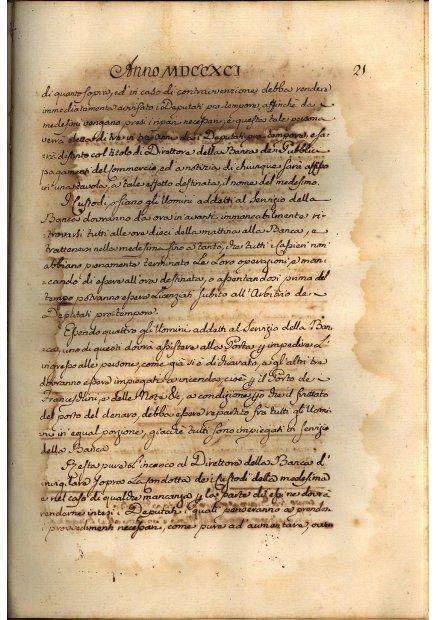 Anno MDCCXCI 21
di quanto sopra, ed in caso di contravvenzione debba rendere
immediatamente avvisati i Deputati pro-tempore, affinchè da
medesimi vengano presi i ripari necessari, e questa tale persona
verrà eletta di tre in tre anni dai Deputati pro-tempore, e sa-
rà distinto col titolo di Direttore della Banca de Pubblici
pagamenti del Commercio, ed a notizia di chiunque sarà affisso
in una tavola, a tale effetto destinata, il nome del medesimo.
I Custodi, o siano gli Uomini addetti al servizio della
Banca dovranno da ora in avanti immancabilmente ri-
trovarsi tutti alle ore dieci della mattina alla Banca, e
trattenersi nella medesima fino a tanto, che tutti i Cassieri non
abbiano pienamente terminato le loro operazioni, e man-
cando di essere all'ora destinata, o assentandosi prima del
tempo potranno essere licenziati subito all'Arbitrio de
Deputati pro-tempore.
Essendo quattro gli Uomini addetti al Servizio della Ban-
ca, uno di questi dovrà assistere alla Porta p impedire l'
ingresso alle persone, come già si è dichiarato, e gli altri tre
dovranno essere impiegati a vicenda, cioè p il Porto de
Francesconi, e delle Note &c, a condizione però che il fruttato
del porto del denaro, debba essere repartito fra tutti gli Uomi-
ni in egual porzione, giacchè tutti sono impiegati in servizio
della Banca.
Resta pure l'incarico al Direttore della Banca d'
invigilare sopra la condotta dei Custodi della medesima
e nel caso di qualche mancanza p la parte di essi ne dovrà
rendere intesi i Deputati, i quali penseranno a prendere
i provvedimenti necessari, come pure ad aumentare, ovvero